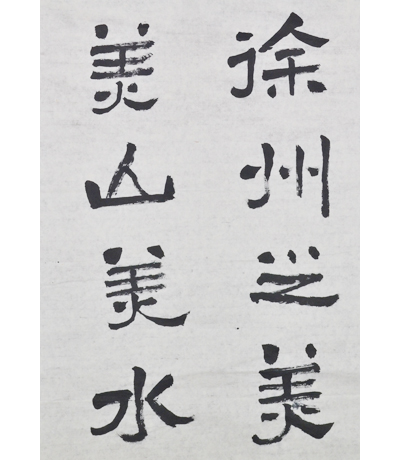 徐州之美
美山美水